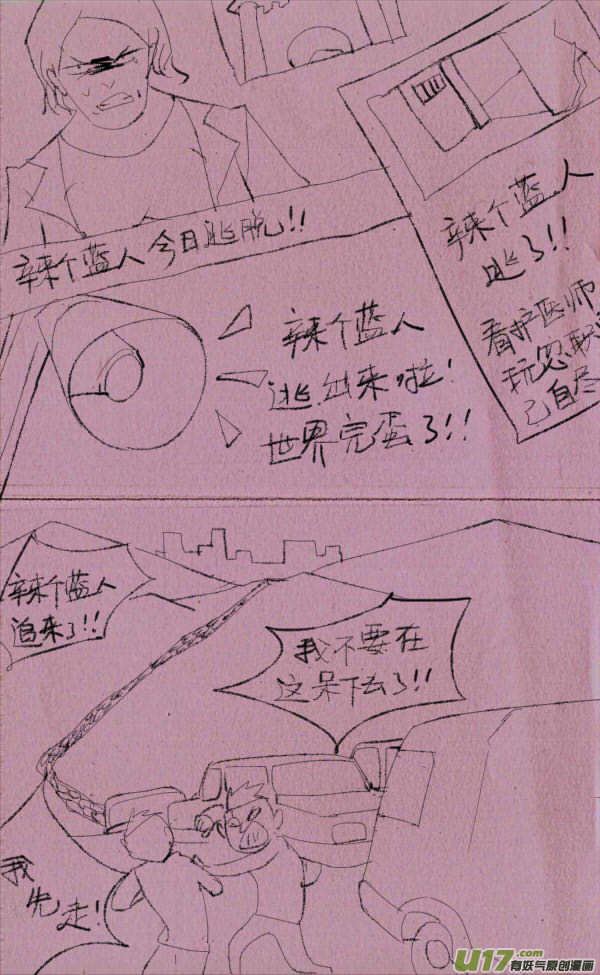 辣个蓝人今日逃脱!!
辣个蓝人
逃了!!
看护医师
玩忽职
已自尽
辣个蓝人
逃出来啦!
世界完蛋了!!
辣个蓝人
追来了!!
我不要在
这呆下去了!!
我先走!
U17.com
有妖气原创漫画